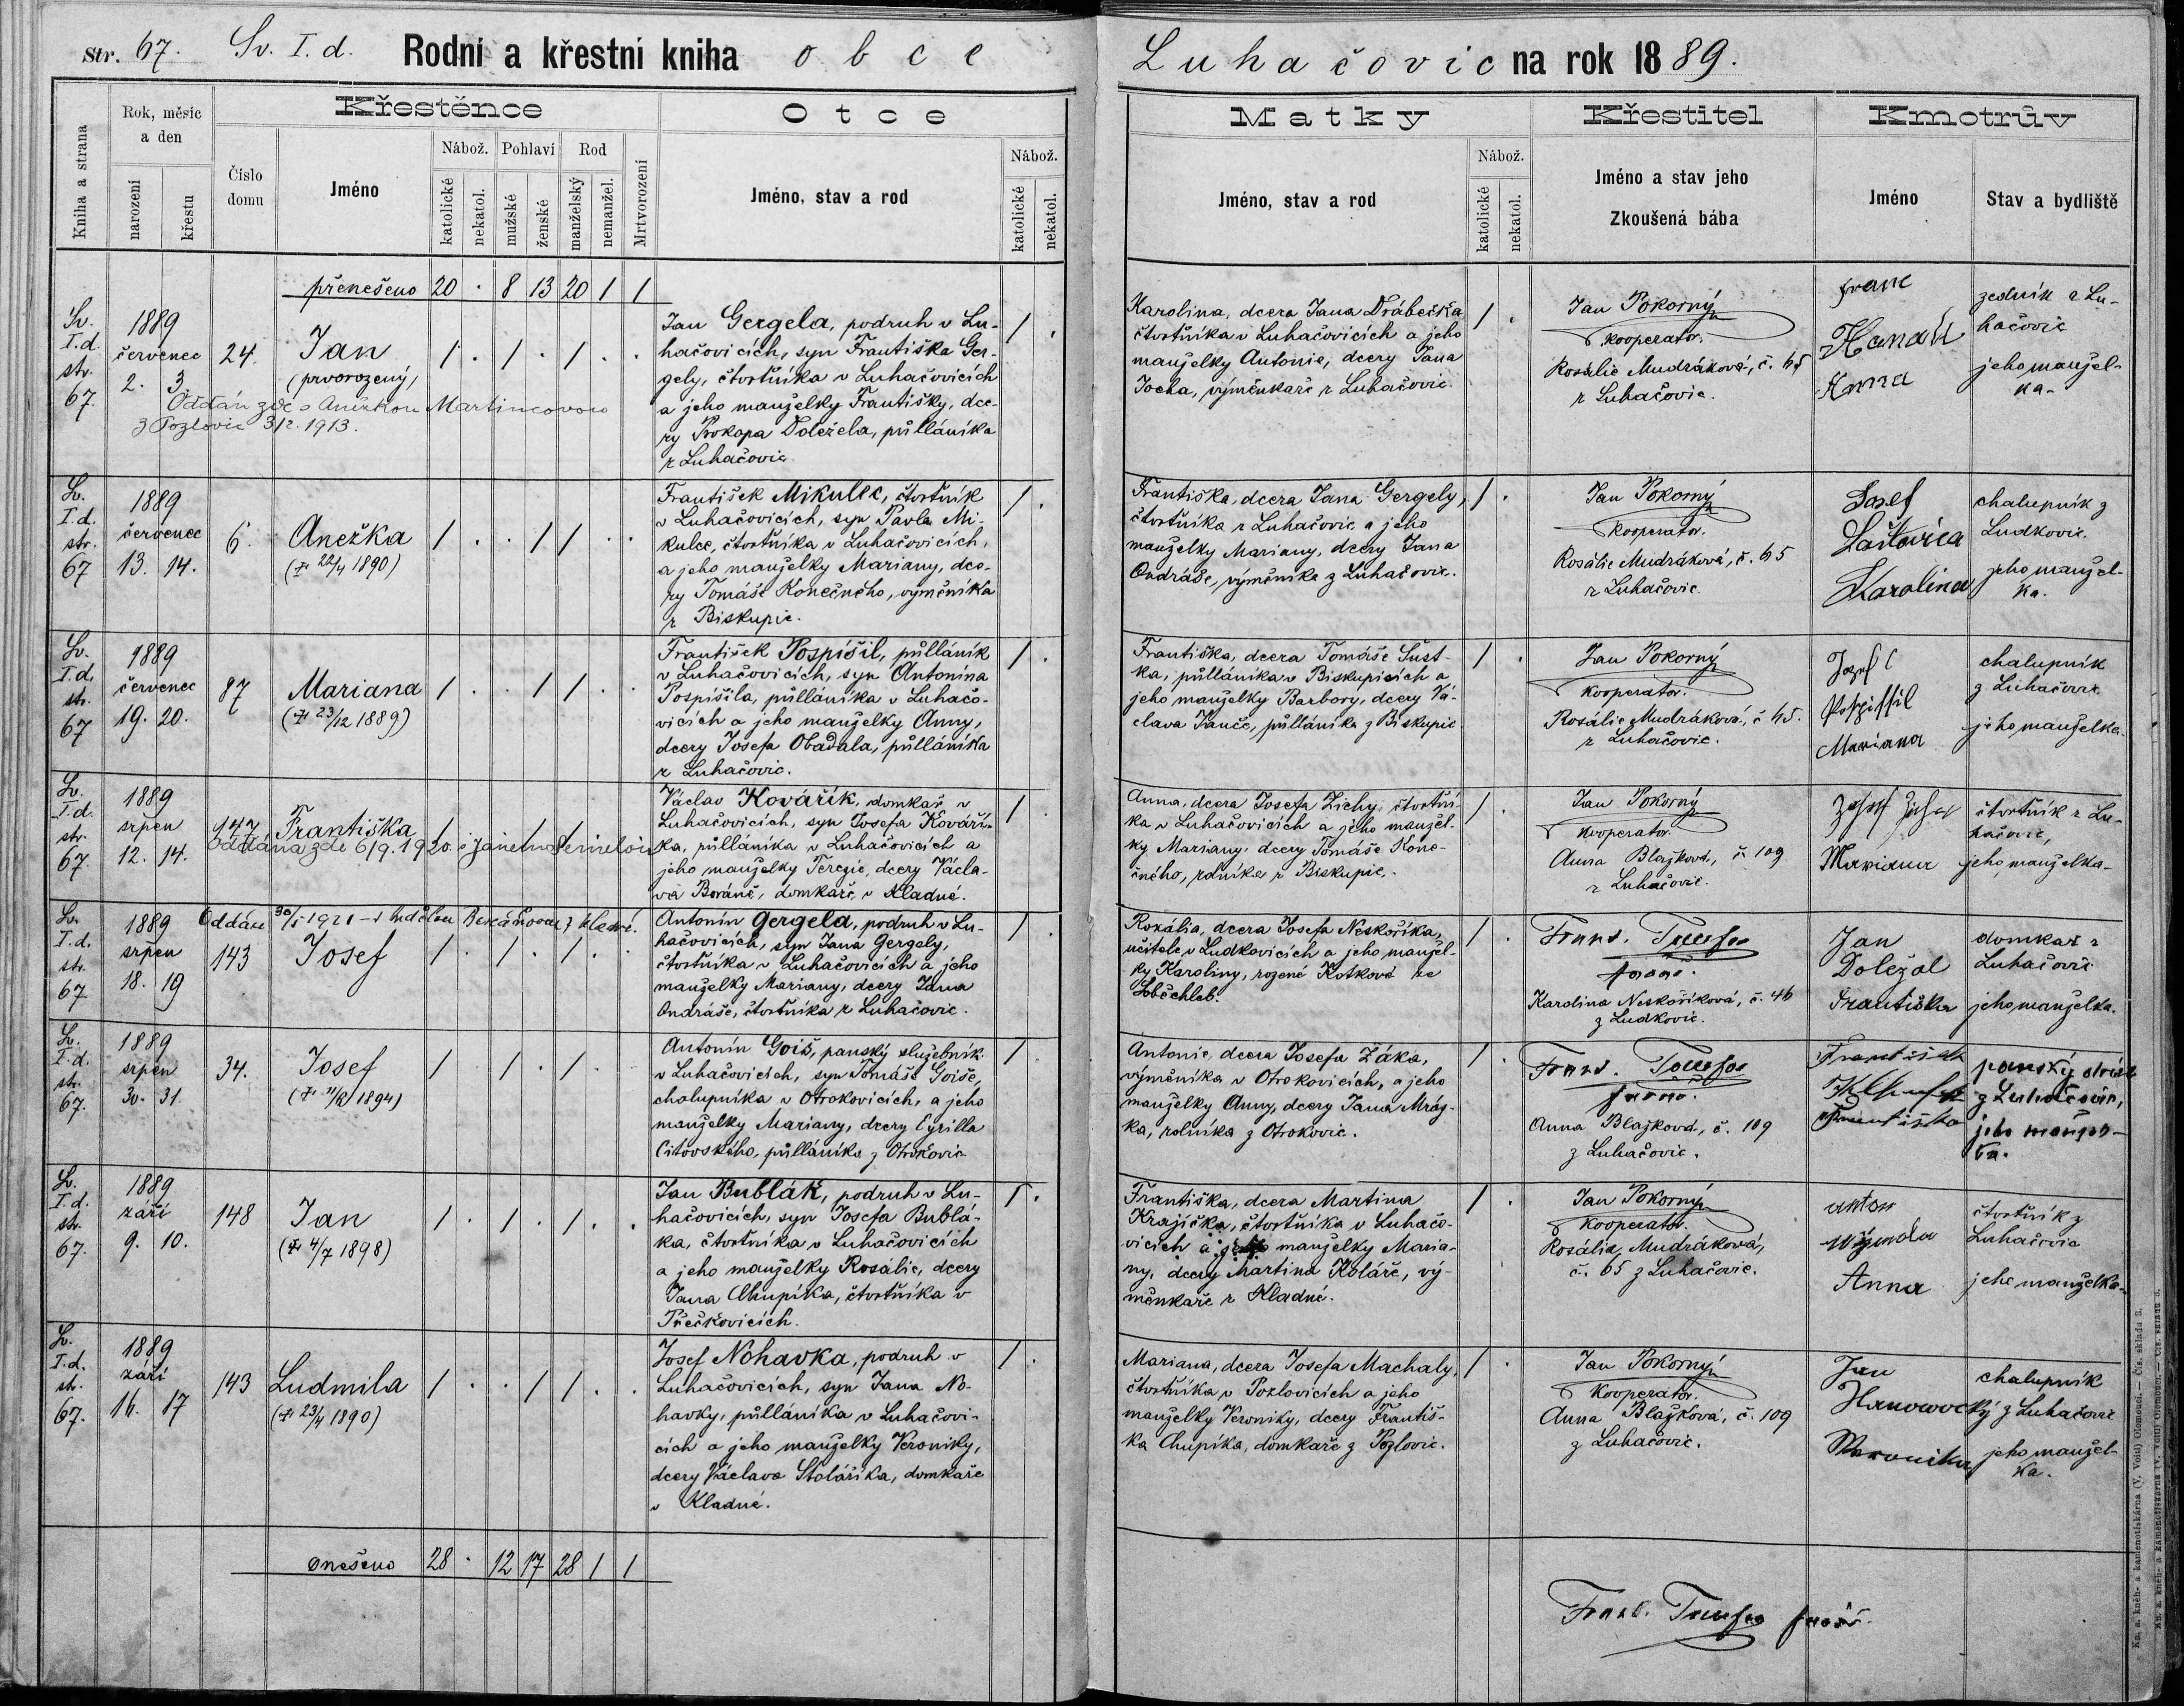 Str. 67. Sv. I. d. Rodní a křestní kniha obce Luhačovic na rok 1889.
Kniha a strana
Rok, měsíc a den
narození
křestu
Číslo domu
Křestěnce
Jméno
Nábož.
katolické
nekatol.
Pohlaví
mužské
ženské
Rod
manželský
nemanžel.
Mrtvorození
Otce
Jméno, stav a rod
Nábož.
katolické
nekatol.
Matky
Jméno, stav a rod
Nábož.
katolické
nekatol.
Křestitel
Jméno a stav jeho
Zkoušená bába
Kmotrův
Jméno
Stav a bydliště
přenešeno 20 . 8 13 20 1 1
Sv.
I.d.
str.
67.
1889
červenec
2. 3.
24.
Jan
(prvorozený)
1 . 1 . 1 . .
Oddán zde s Anežkou Martincovou
z Pozlovic 3/2. 1913.
Jan Gergela, podruh v Lu-
hačovicích, syn Františka Ger-
gely, čtvrtníka v Luhačovicích
a jeho manželky Františky, dce-
ry Prokopa Doležela, půlláníka
z Luhačovic
1 .
Karolina, dcera Jana Drábečka,
čtvrtníka v Luhačovicích a jeho
manželky Antonie, dcery Jana
Jocha, výměnkaře z Luhačovic.
1 .
Jan Pokorný
kooperator.
Rosalie Mudráková, č. 65
z Luhačovic.
Hanák
Anna
zedník z Lu-
hačovic
jeho manžel-
ka.
Sv.
I.d.
str.
67
1889
červenec
13. 14.
6.
Anežka
(† 22/4 1890)
1 . . 1 1 . .
František Mikulec, čtvrtník
v Luhačovicích, syn Pavla Mi-
kulce, čtvrtníka v Luhačovicích,
a jeho manželky Mariany, dce-
ry Tomáše Konečného, výměníka
z Biskupic.
1 .
Františka, dcera Jana Gergely,
čtvrtníka z Luhačovic a jeho
manželky Mariany, dcery Jana
Ondráše, výměníka z Luhačovic.
1 .
Jan Pokorný
kooperator.
Rosálie Mudráková, č. 65
z Luhačovic.
Josef
Laštovica
Karolina
chalupník z
Ludkovic.
jeho manžel-
ka.
Sv.
I.d.
str.
67
1889
červenec
19. 20.
87
Mariana
(† 23/12 1889)
1 . . 1 1 . .
František Pospíšil, půlláník
v Luhačovicích, syn Antonína
Pospíšila, půlláníka v Luhačo-
vicích a jeho manželky Anny,
dcery Josefa Obadala, půlláníka
z Luhačovic.
1 .
Františka, dcera Tomáše Šust-
ka, půlláníka v Biskupicích a
jeho manželky Barbory, dcery Vá-
clava Janče, půlláníka z Biskupic
1 .
Jan Pokorný
kooperator.
Rosálie Mudráková, č 65.
z Luhačovic.
Josef
Pospissil
Mariana
chalupník
z Luhačovic
jeho manželka.
Sv.
I.d.
str.
67
1889
srpen
12. 14.
147.
Františka
Oddána zde 6/9. 1920. s Janem
Václav Kovářík, domkař v
Luhačovicích, syn Josefa Kováří-
ka, půlláníka v Luhačovicích a
jeho manželky Terezie, dcery Václa-
va Boráně, domkaře v Kladné.
1 .
Anna, dcera Josefa Zichy, čtvrtní-
ka v Luhačovicích a jeho manžel-
ky Mariany, dcery Tomáše Kone-
čného, rolníka z Biskupic.
1 .
Jan Pokorný
kooperator.
Anna Blažková, č. 109
z Luhačovic.
Mariana
čtvrtník z Lu-
hačovic,
jeho manželka-
Sv.
I.d.
str.
67
1889
srpen
18. 19
143
Oddán 30/5 1921
Josef
1 . 1 . 1 .
Antonín Gergela, podruh v Lu-
hačovicích, syn Jana Gergely,
čtvrtníka v Luhačovicích a jeho
manželky Mariany, dcery Jana
Ondráše, čtvrtníka z Luhačovic.
1 .
Rozália, dcera Josefa Neskoříka,
učitele v Ludkovicích a jeho manžel-
ky Karoliny, rozené Kotkové ze
Soběchleb.
1 .
farář.
Karolina Neskoříková, č. 46
z Ludkovic.
Jan
Doležal
Františka
domkař z
Luhačovic
jeho manželka.
Sv.
I.d.
str.
67.
1889
srpen
30. 31.
34.
Josef
1 1 . 1 .
Antonín Goiš, panský služebník
v Luhačovicích, syn Tomáše Goiše,
chalupníka v Otrokovicích, a jeho
manželky Mariany, dcery Cyrilla
Citovského, půlláníka z Otrokovic
1
Antonie, dcera Josefa Žáka,
výměníka v Otrokovicích, a jeho
manželky Anny, dcery Jana Mráz-
ka, rolníka z Otrokovic.
1 .
farář.
Anna Blažková, č. 109
z Luhačovic.
František
Františka
panský
z Luhačovic,
jeho manžel-
ka.
Sv.
I.d.
str.
67.
1889
září
9. 10.
148
Jan
(† 4/7 1898)
1 . 1 . 1 . .
Jan Bublák, podruh v Lu-
hačovicích, syn Josefa Bublá-
ka, čtvrtníka v Luhačovicích
a jeho manželky Rosalie, dcery
Jana Chupíka, čtvrtníka v
Přečkovicích.
1 .
Františka, dcera Martina
Krajíčka, čtvrtníka v Luhačo-
vicích a jeho manželky Maria-
ny, dcery Martina Koláře, vý-
měnkaře z Kladné.
1 .
Jan Pokorný
kooperator.
Rosália Mudráková,
č. 65 z Luhačovic.
Anton
Anna
čtvrtník z
Luhačovic
jeho manželka.
Sv.
I.d.
str.
67.
1889
září
16. 17
143
Ludmila
(† 23/4 1890)
1 . . 1 1 . .
Josef Nohavka, podruh v
Luhačovicích, syn Jana No-
havky, půlláníka v Luhačovi-
cích a jeho manželky Veroniky,
dcery Václava Stoláříka, domkaře
v Kladné.
1 .
Mariana, dcera Josefa Machaly,
čtvrtníka v Pozlovicích a jeho
manželky Veroniky, dcery Františ-
ka Chupíka, domkaře z Pozlovic.
1 .
Jan Pokorný
kooperator.
Anna Blažková, č. 109
z Luhačovic.
Jan
Veronika
chalupník
z Luhačovic
jeho manžel-
ka.
onešeno 28 . 12 17 28 1 1
farář.